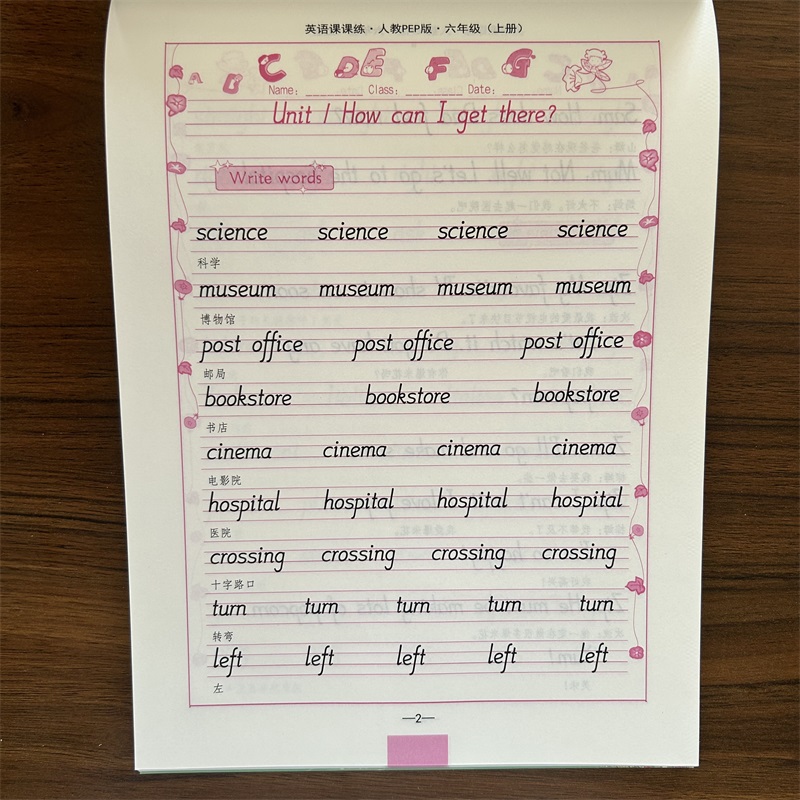 英语课课练·人教PEP版·六年级（上册）
A B C D E F G
Name: ________ Class: ________ Date: ________
Unit 1 How can I get there?
Write words
science science science science
科学
museum museum museum museum
博物馆
post office post office post office
邮局
bookstore bookstore bookstore
书店
cinema cinema cinema cinema
电影院
hospital hospital hospital hospital
医院
crossing crossing crossing crossing
十字路口
turn turn turn turn turn
转弯
left left left left left
左
—2—